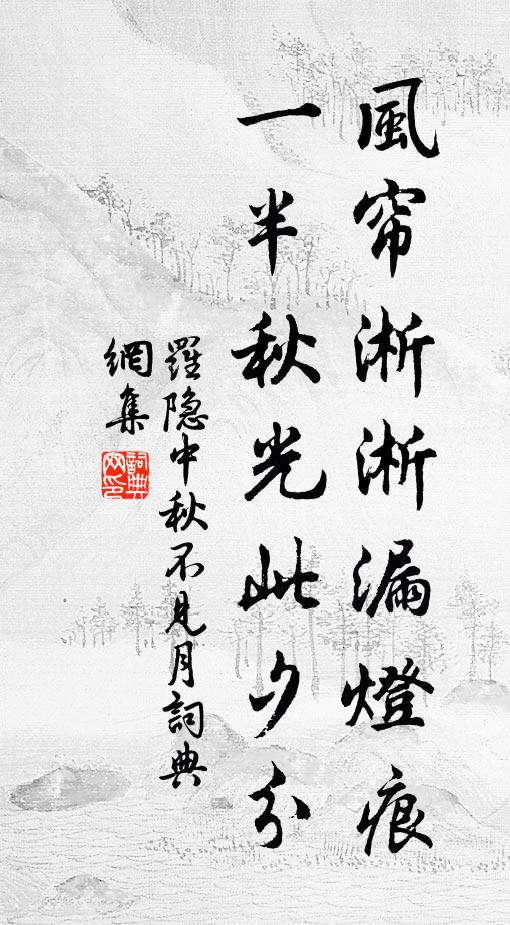 風帘淅淅漏燈痕
一半秋光此夕分
羅隐中秋不見月詞典
網集
詞典網印